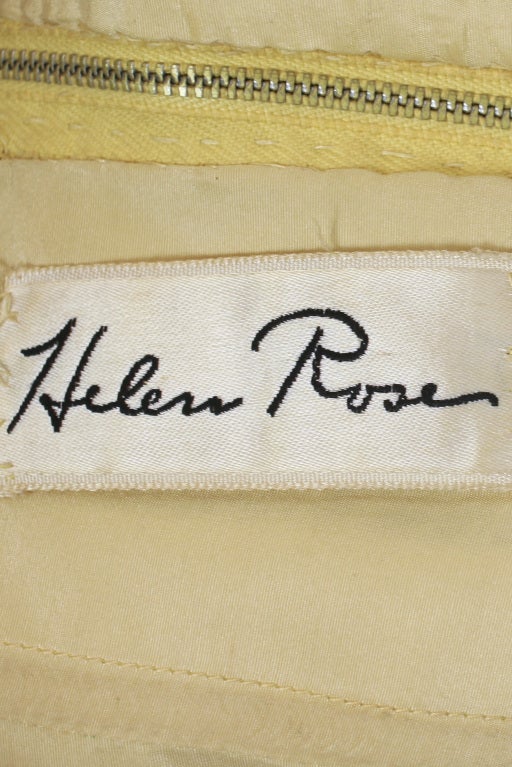 Helen Rose